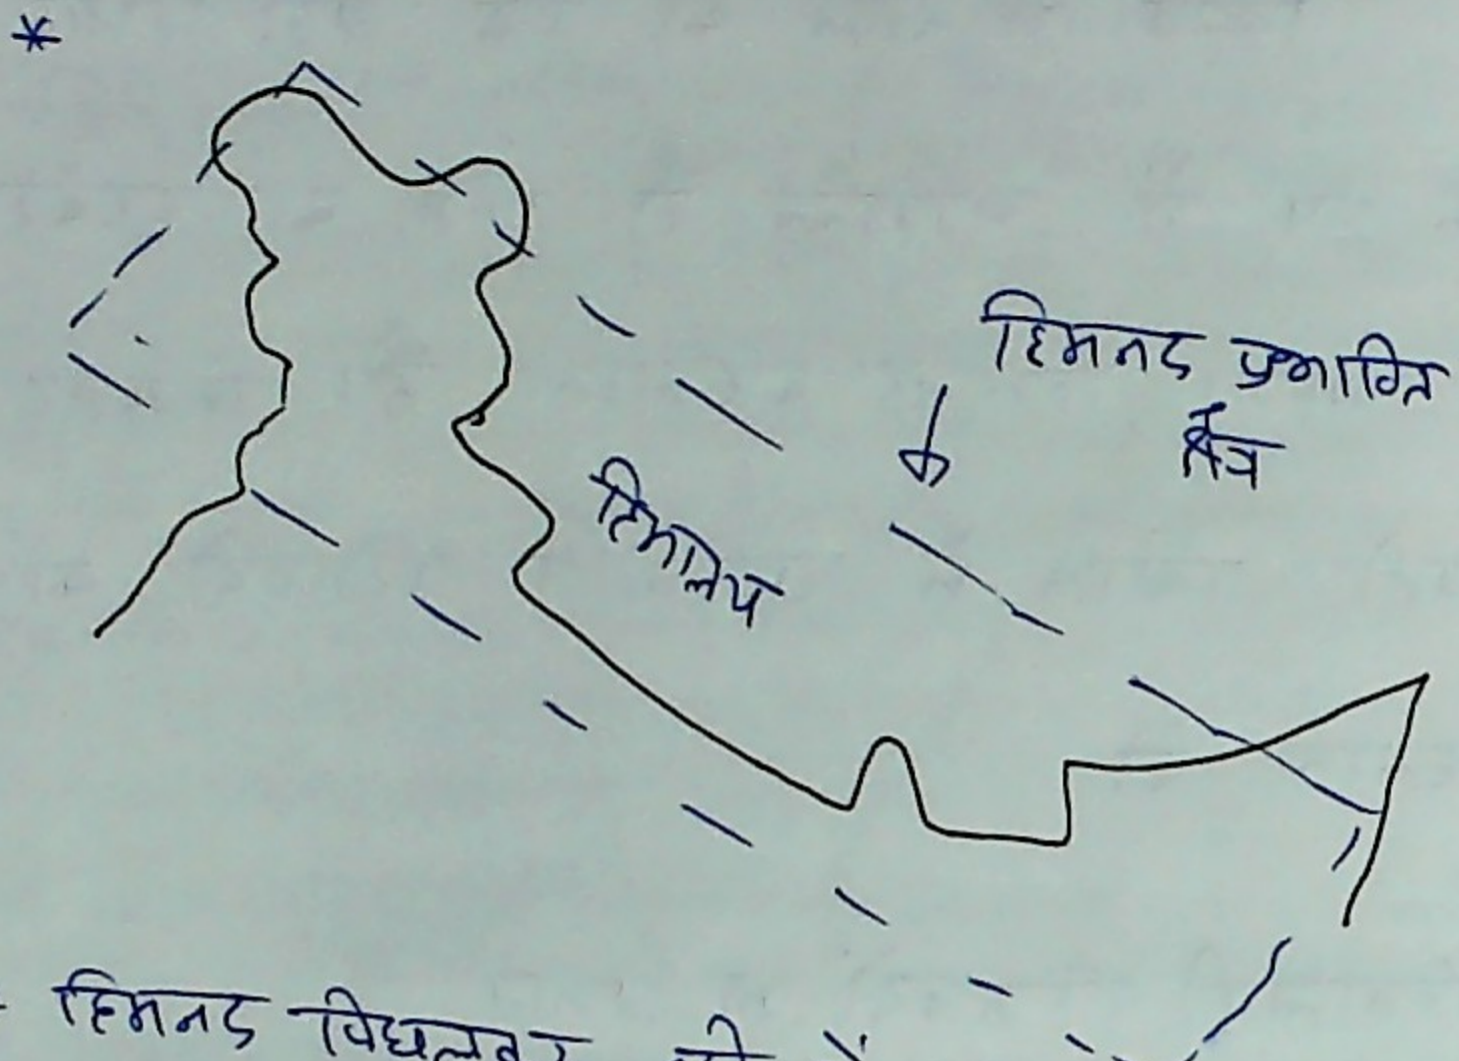 *
हिमनद प्रभावित
क्षेत्र
हिमालय
- हिमनद पिघलकर